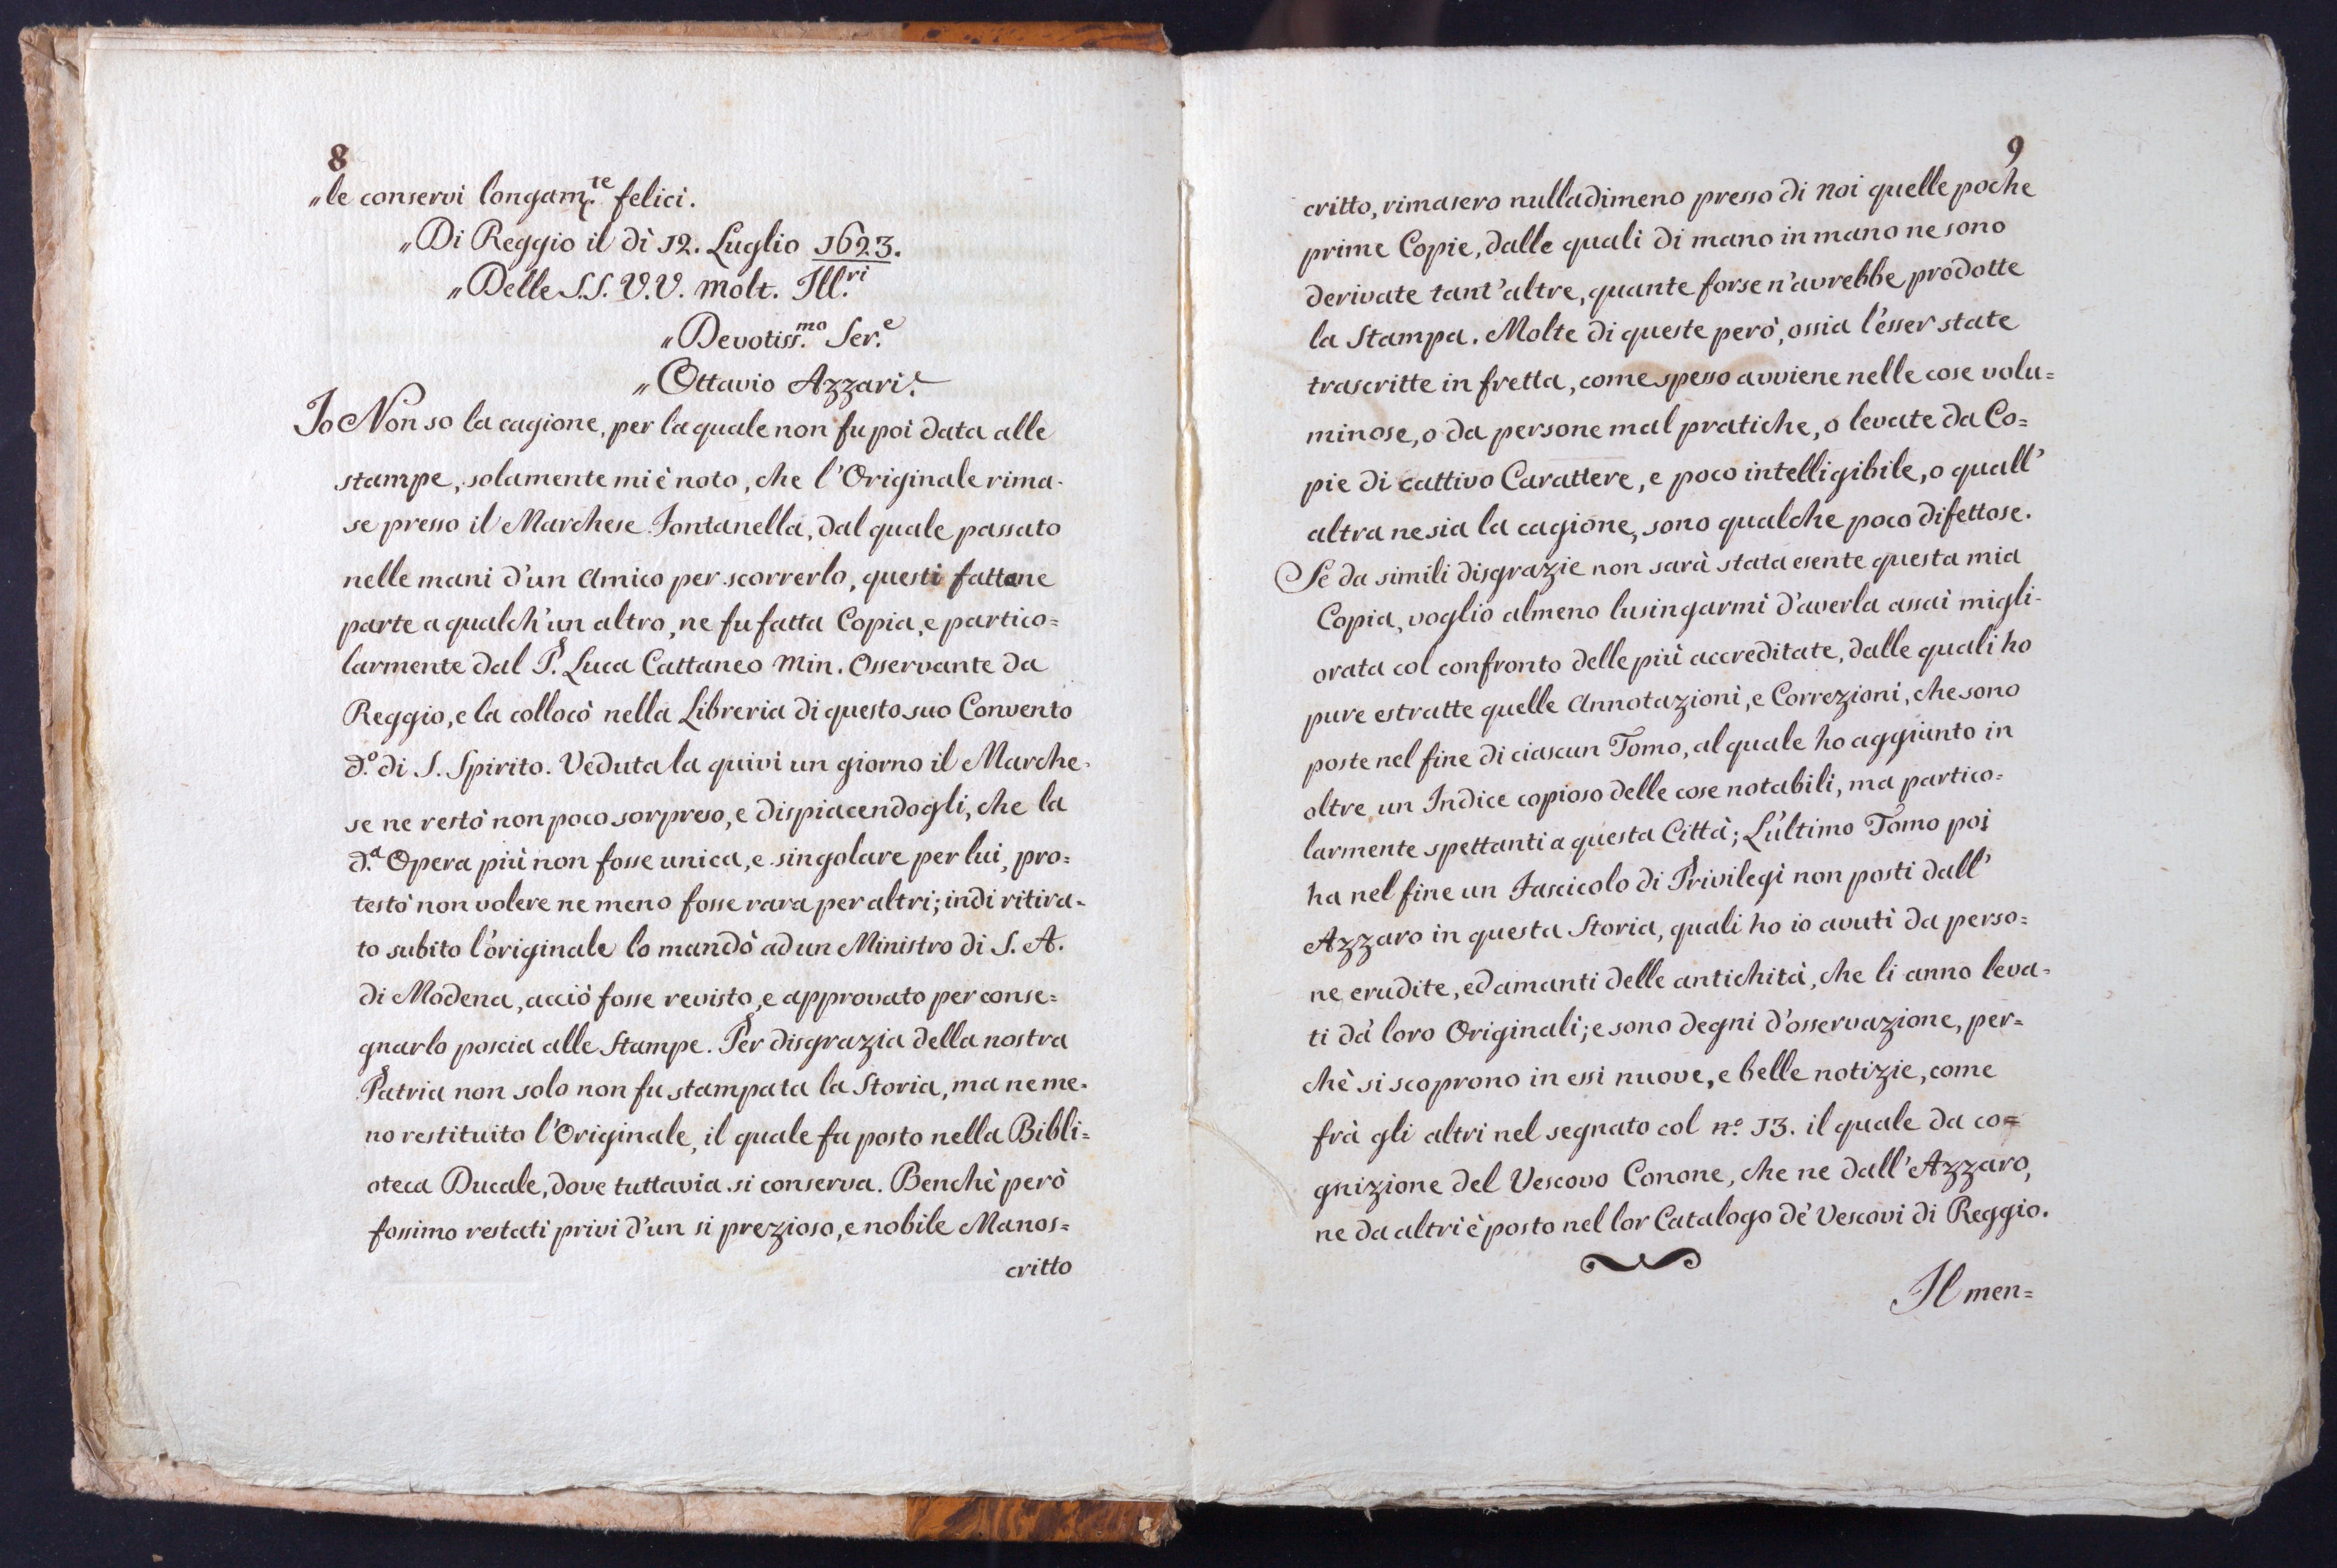 8
„le conservi longam.te felici.
„Di Reggio il dì 12. Luglio 1623.
„Delle S.S. V.V. Molt. Ill.ri
„Devotiss.mo Ser.e
„Ottavio Azzari.
Io Non so la cagione, per la quale non fu poi data alle
stampe, solamente mi è noto, che l'Originale rima-
se presso il Marchese Fontanella, dal quale passato
nelle mani d'un Amico per scorrerlo, questi fattone
parte a qualch'un altro, ne fu fatta Copia, e partico=
larmente dal P. Luca Cattaneo Min. Osservante da
Reggio, e la collocò nella Libreria di questo suo Convento
d.o di S. Spirito. Veduta la quivi un giorno il Marche-
se ne restò non poco sorpreso, e dispiacendogli, che la
d.a Opera più non fosse unica, e singolare per lui, pro=
testò non volere ne meno fosse rara per altri; indi ritira-
to subito l'originale lo mandò ad un Ministro di S. A.
di Modena, acciò fosse revisto, e approvato per conse=
gnarlo poscia alle Stampe. Per disgrazia della nostra
Patria non solo non fu stampata la Storia, ma ne me-
no restituito l'Originale, il quale fu posto nella Bibli=
oteca Ducale, dove tuttavia si conserva. Benchè però
fossimo restati privi d'un si prezioso, e nobile Manos=
critto
9
critto, rimasero nulladimeno presso di noi quelle poche
prime Copie, dalle quali di mano in mano ne sono
derivate tant'altre, quante forse n'avrebbe prodotte
la Stampa. Molte di queste però, ossia l'esser state
trascritte in fretta, come spesso avviene nelle cose volu=
minose, o da persone mal pratiche, o levate da Co=
pie di cattivo Carattere, e poco intelligibile, o quall'
altra ne sia la cagione, sono qualche poco difettose.
Se da simili disgrazie non sarà stata esente questa mia
Copia, voglio almeno lusingarmi d'averla assai migli-
orata col confronto delle più accreditate, dalle quali ho
pure estratte quelle Annotazioni, e Correzioni, che sono
poste nel fine di ciascun Tomo, al quale ho aggiunto in
oltre un Indice copioso delle cose notabili, ma partico=
larmente spettanti a questa Città; L'ultimo Tomo poi
ha nel fine un Fascicolo di Privilegi non posti dall'
Azzaro in questa Storia, quali ho io avuti da perso=
ne erudite, ed amanti delle antichità, che li anno leva-
ti da' loro Originali; e sono degni d'osservazione, per=
chè si scoprono in essi nuove, e belle notizie, come
frà gli altri nel segnato col n.o 13. il quale da co=
gnizione del Vescovo Conone, che ne dall'Azzaro,
ne da altri è posto nel lor Catalogo de' Vescovi di Reggio.
Il men=